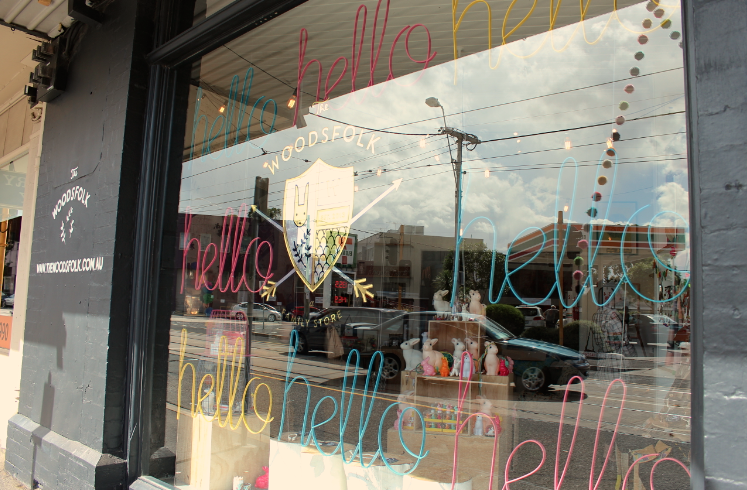 hello
hello
hello
THE
WOODSFOLK
THE
WOODSFOLK
WWW.THEWOODSFOLK.COM.AU
hello
hello
STORE
hello
hello
hello